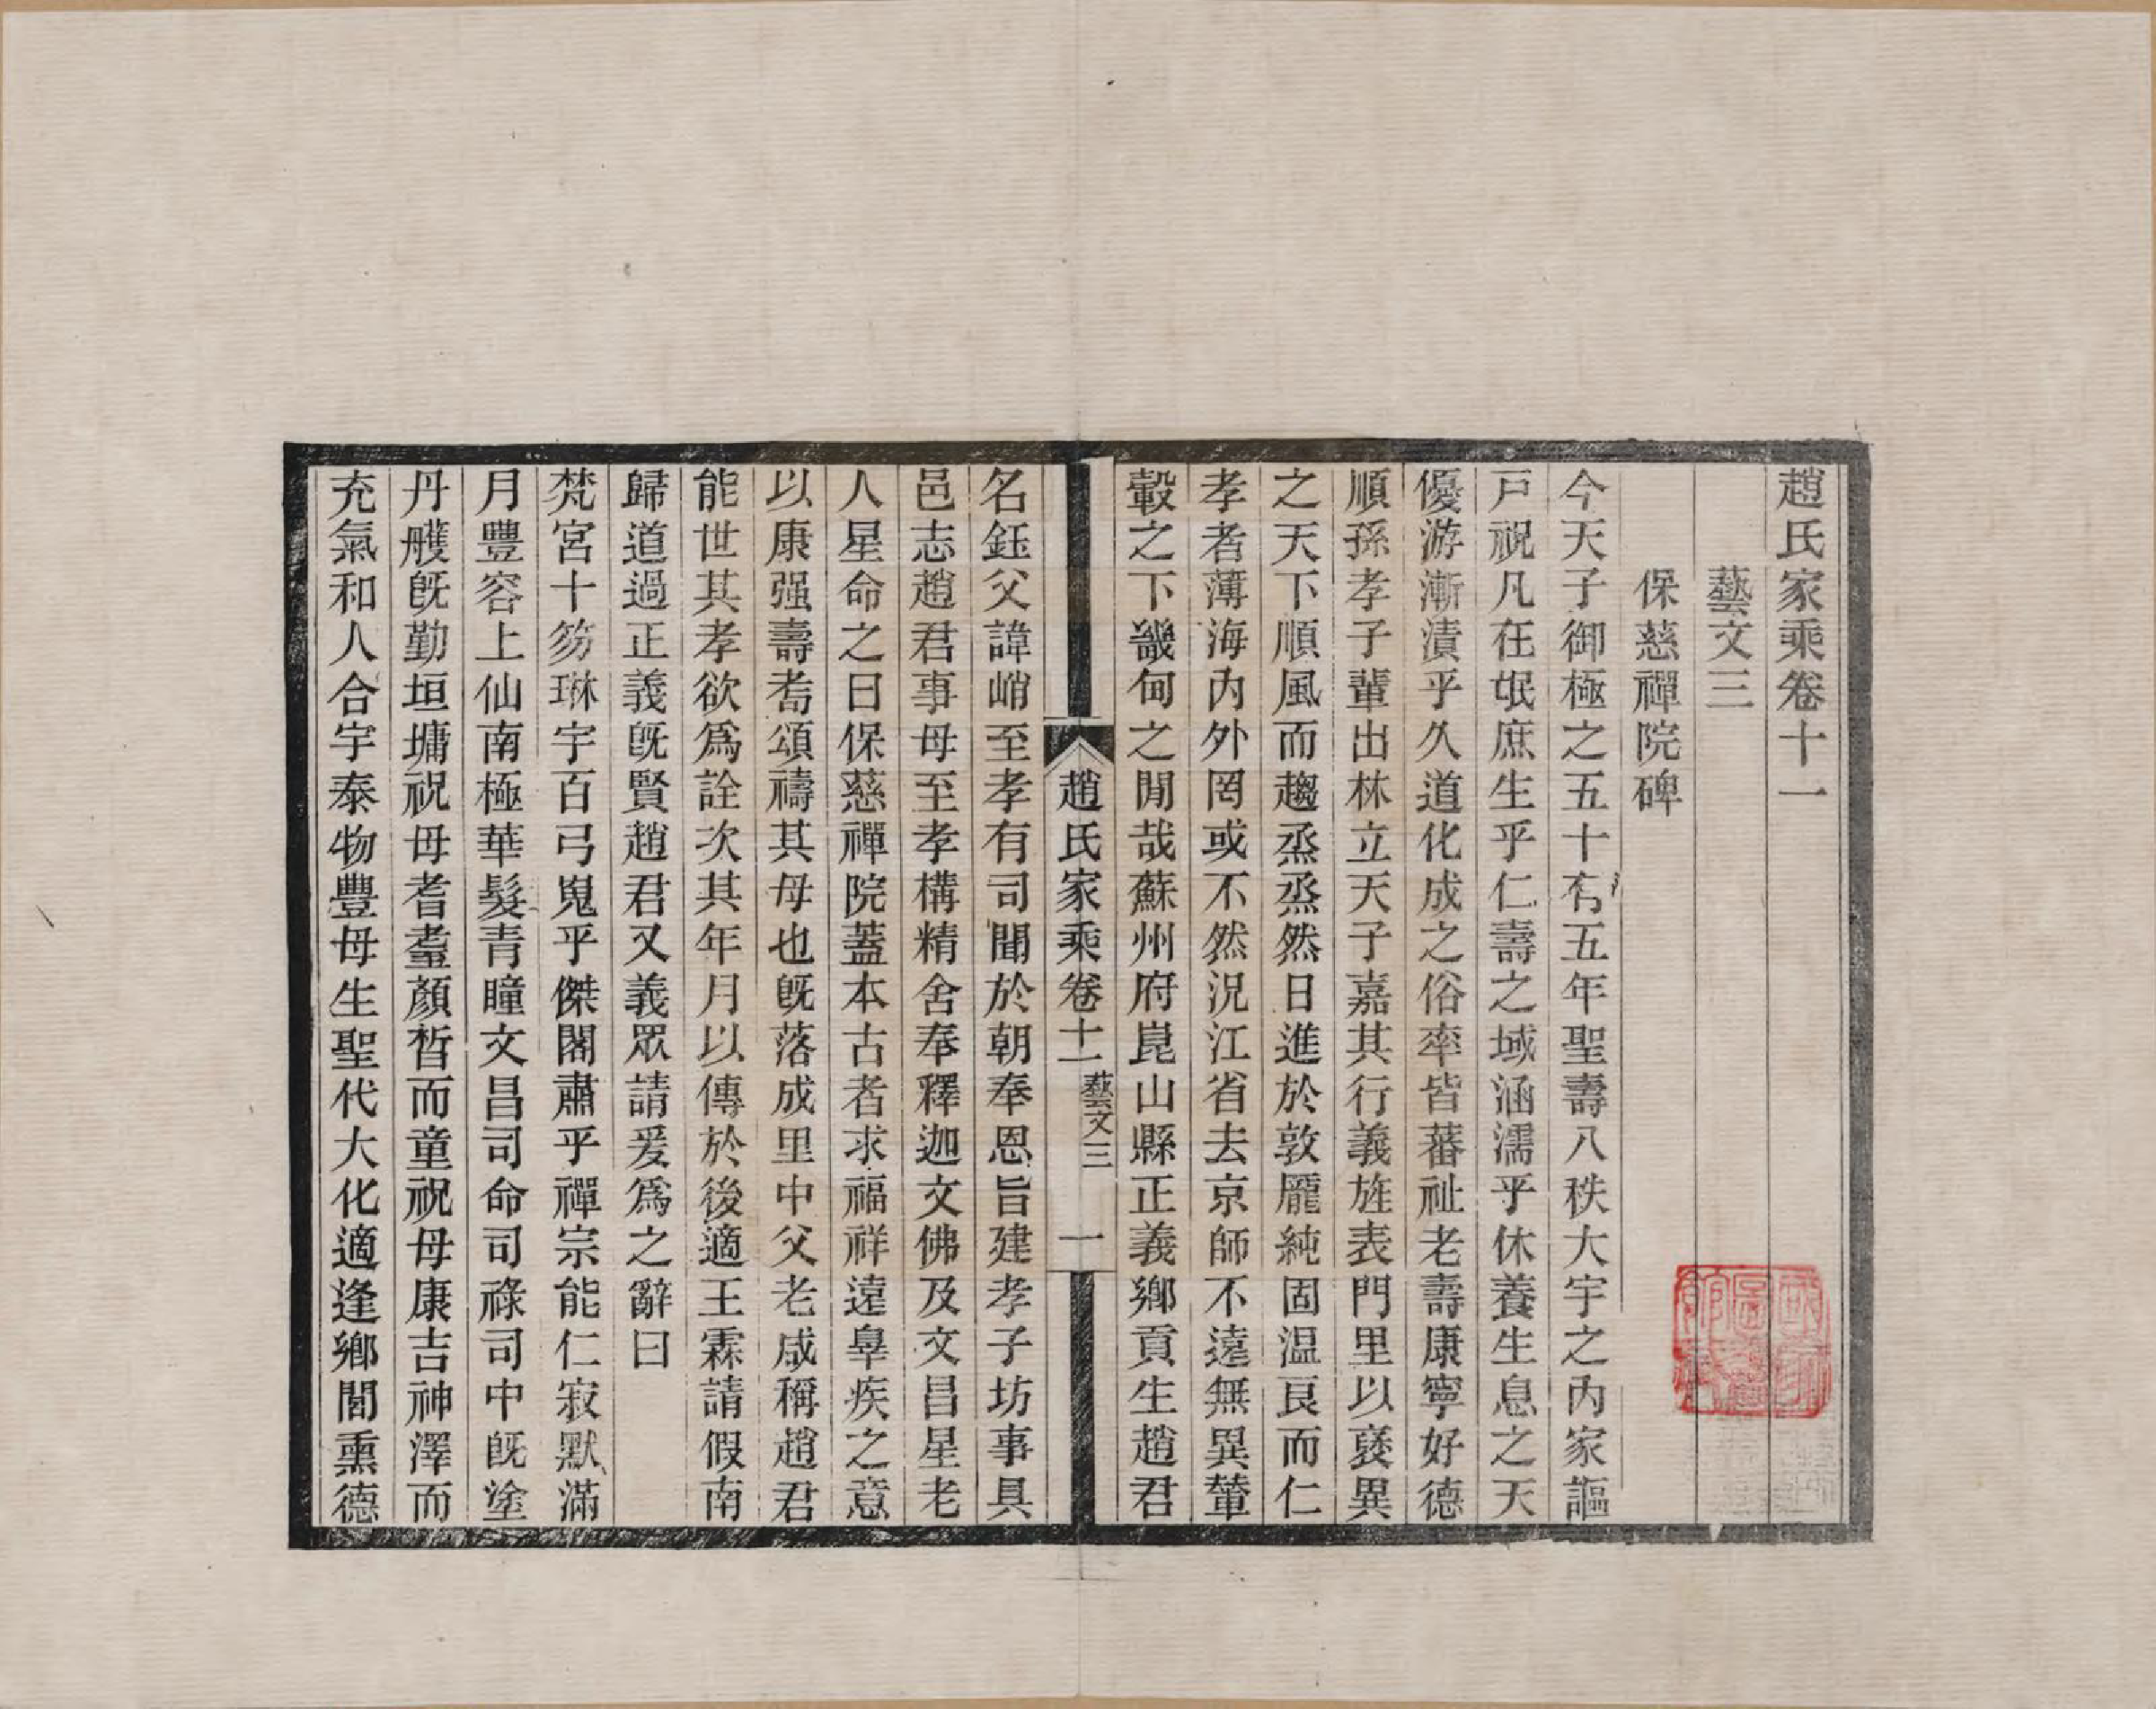 趙氏家乘卷十一
藝文三
保慈禪院碑
今天子御極之五十有五年聖壽八秩大宇之內家謳
戸祝凡在氓庶生乎仁壽之域涵濡乎休養生息之天
優游漸漬乎久道化成之俗率皆蕃祉老壽康寧好德
順孫孝子輩出林立天子嘉其行義旌表門里以襃異
之天下順風而趨烝烝然日進於敦龎純固温良而仁
孝者薄海內外罔或不然況江省去京師不遠無異輦
轂之下畿甸之閒哉蘇州府崑山縣正義鄉貢生趙君
趙氏家乘卷十一 藝文三 一
名鈺父諱峭至孝有司聞於朝奉恩旨建孝子坊事具
邑志趙君事母至孝構精舍奉釋迦文佛及文昌星老
人星命之曰保慈禪院蓋本古者求福祥遠辠疾之意
以康强壽耇頌禱其母也旣落成里中父老咸稱趙君
能世其孝欲爲詮次其年月以傳於後適王霖請假南
歸道過正義旣賢趙君又義眾請爰爲之辭曰
梵宮十笏琳宇百弓嵬乎傑閣肅乎禪宗能仁寂默滿
月豐容上仙南極華髮青瞳文昌司命司祿司中旣塗
丹雘旣勤垣墉祝母耆耋顏晳而童祝母康吉神澤而
充氣和人合宇泰物豐母生聖代大化適逢鄉閭熏德